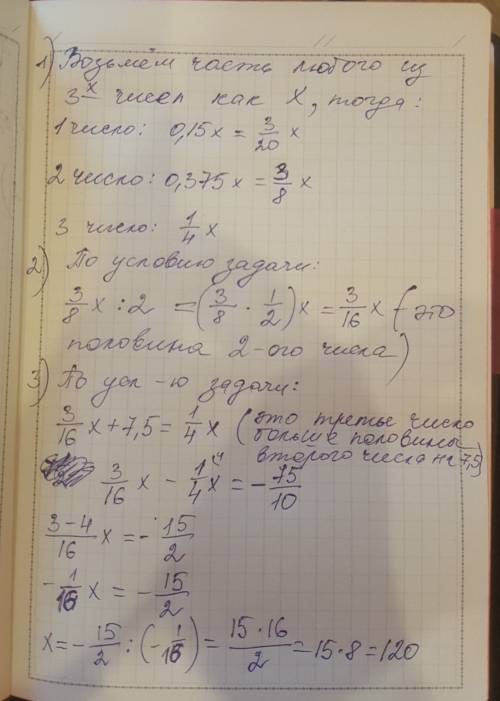 1) Возьмём часть любого из
3-х чисел как X, тогда:
1 число: 0,15x = 3/20 x
2 число: 0,375x = 3/8 x
3 число: 1/4 x
2) По условию задачи:
3/8 x : 2 = (3/8 · 1/2) x = 3/16 x (- это
половина 2-ого числа)
3) По усл-ю задачи:
3/16 x + 7,5 = 1/4 x (это третье число
больше половины
второго числа на 7,5)
3/16 x - 1/4 x = - 75/10
3-4/16 x = - 15/2
- 1/16 x = - 15/2
x = - 15/2 : (- 1/16) = 15·16/2 = 15·8 = 120